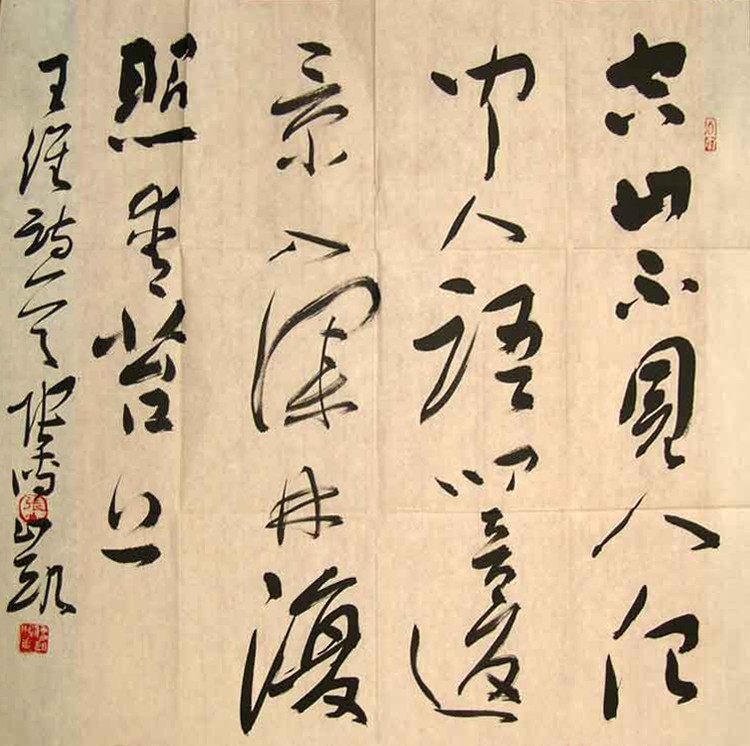 空山不見人但
聞人語響返
景入深林復
照青苔上
王維詩一首 張